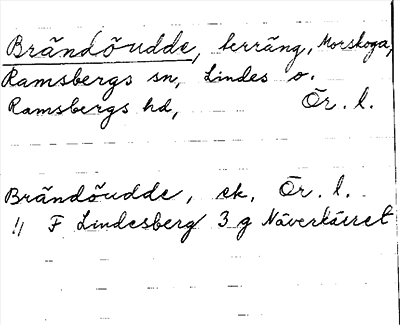 Brändöudde, terräng, Morskoga,
Ramsbergs sn, Lindes o.
Ramsbergs hd, Ör. l.
Brändöudde, ek. Ör. l.
F Lindesberg 3 g Näverkärret